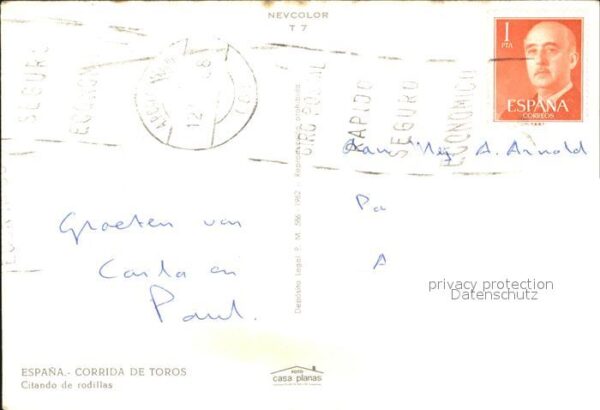 NEVCOLOR
T 7
1
PTA
ESPAÑA
CORREOS
SEGURO
GIRO POSTAL
RAPIDO
SEGURO
ECONOMICO
A. Arnold
Pa
A
Groeten van
Carla en
Paul.
Depósito Legal P. M. 586 - 1962 - Reproducción prohibida
privacy protection
Datenschutz
ESPAÑA.- CORRIDA DE TOROS
Citando de rodillas
FOTO
casa planas